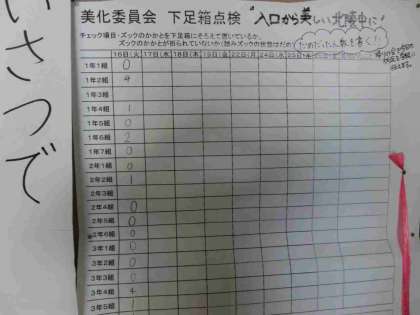 美化委員会 下足箱点検 "入口から美しい北陵中に"
チェック項目・ズックのかかとを下足箱にそろえて置いているか。
ズックのかかとが折られていないか(踏みズックの状態はだめ)
だめだった人数を書く!!
16日(火) 17日(水) 18日(木) 19日(金) 22日(月) 24日(水) 25日(木)
1年1組 0
1年2組 4
1年3組
1年4組 1
1年5組 0
1年6組 2
1年7組 0
2年1組 0
2年2組 1
2年3組
2年4組 0
2年5組 0
2年6組 0
3年1組 0
3年2組 0
3年3組 0
3年4組 4
3年5組 1
いさつで